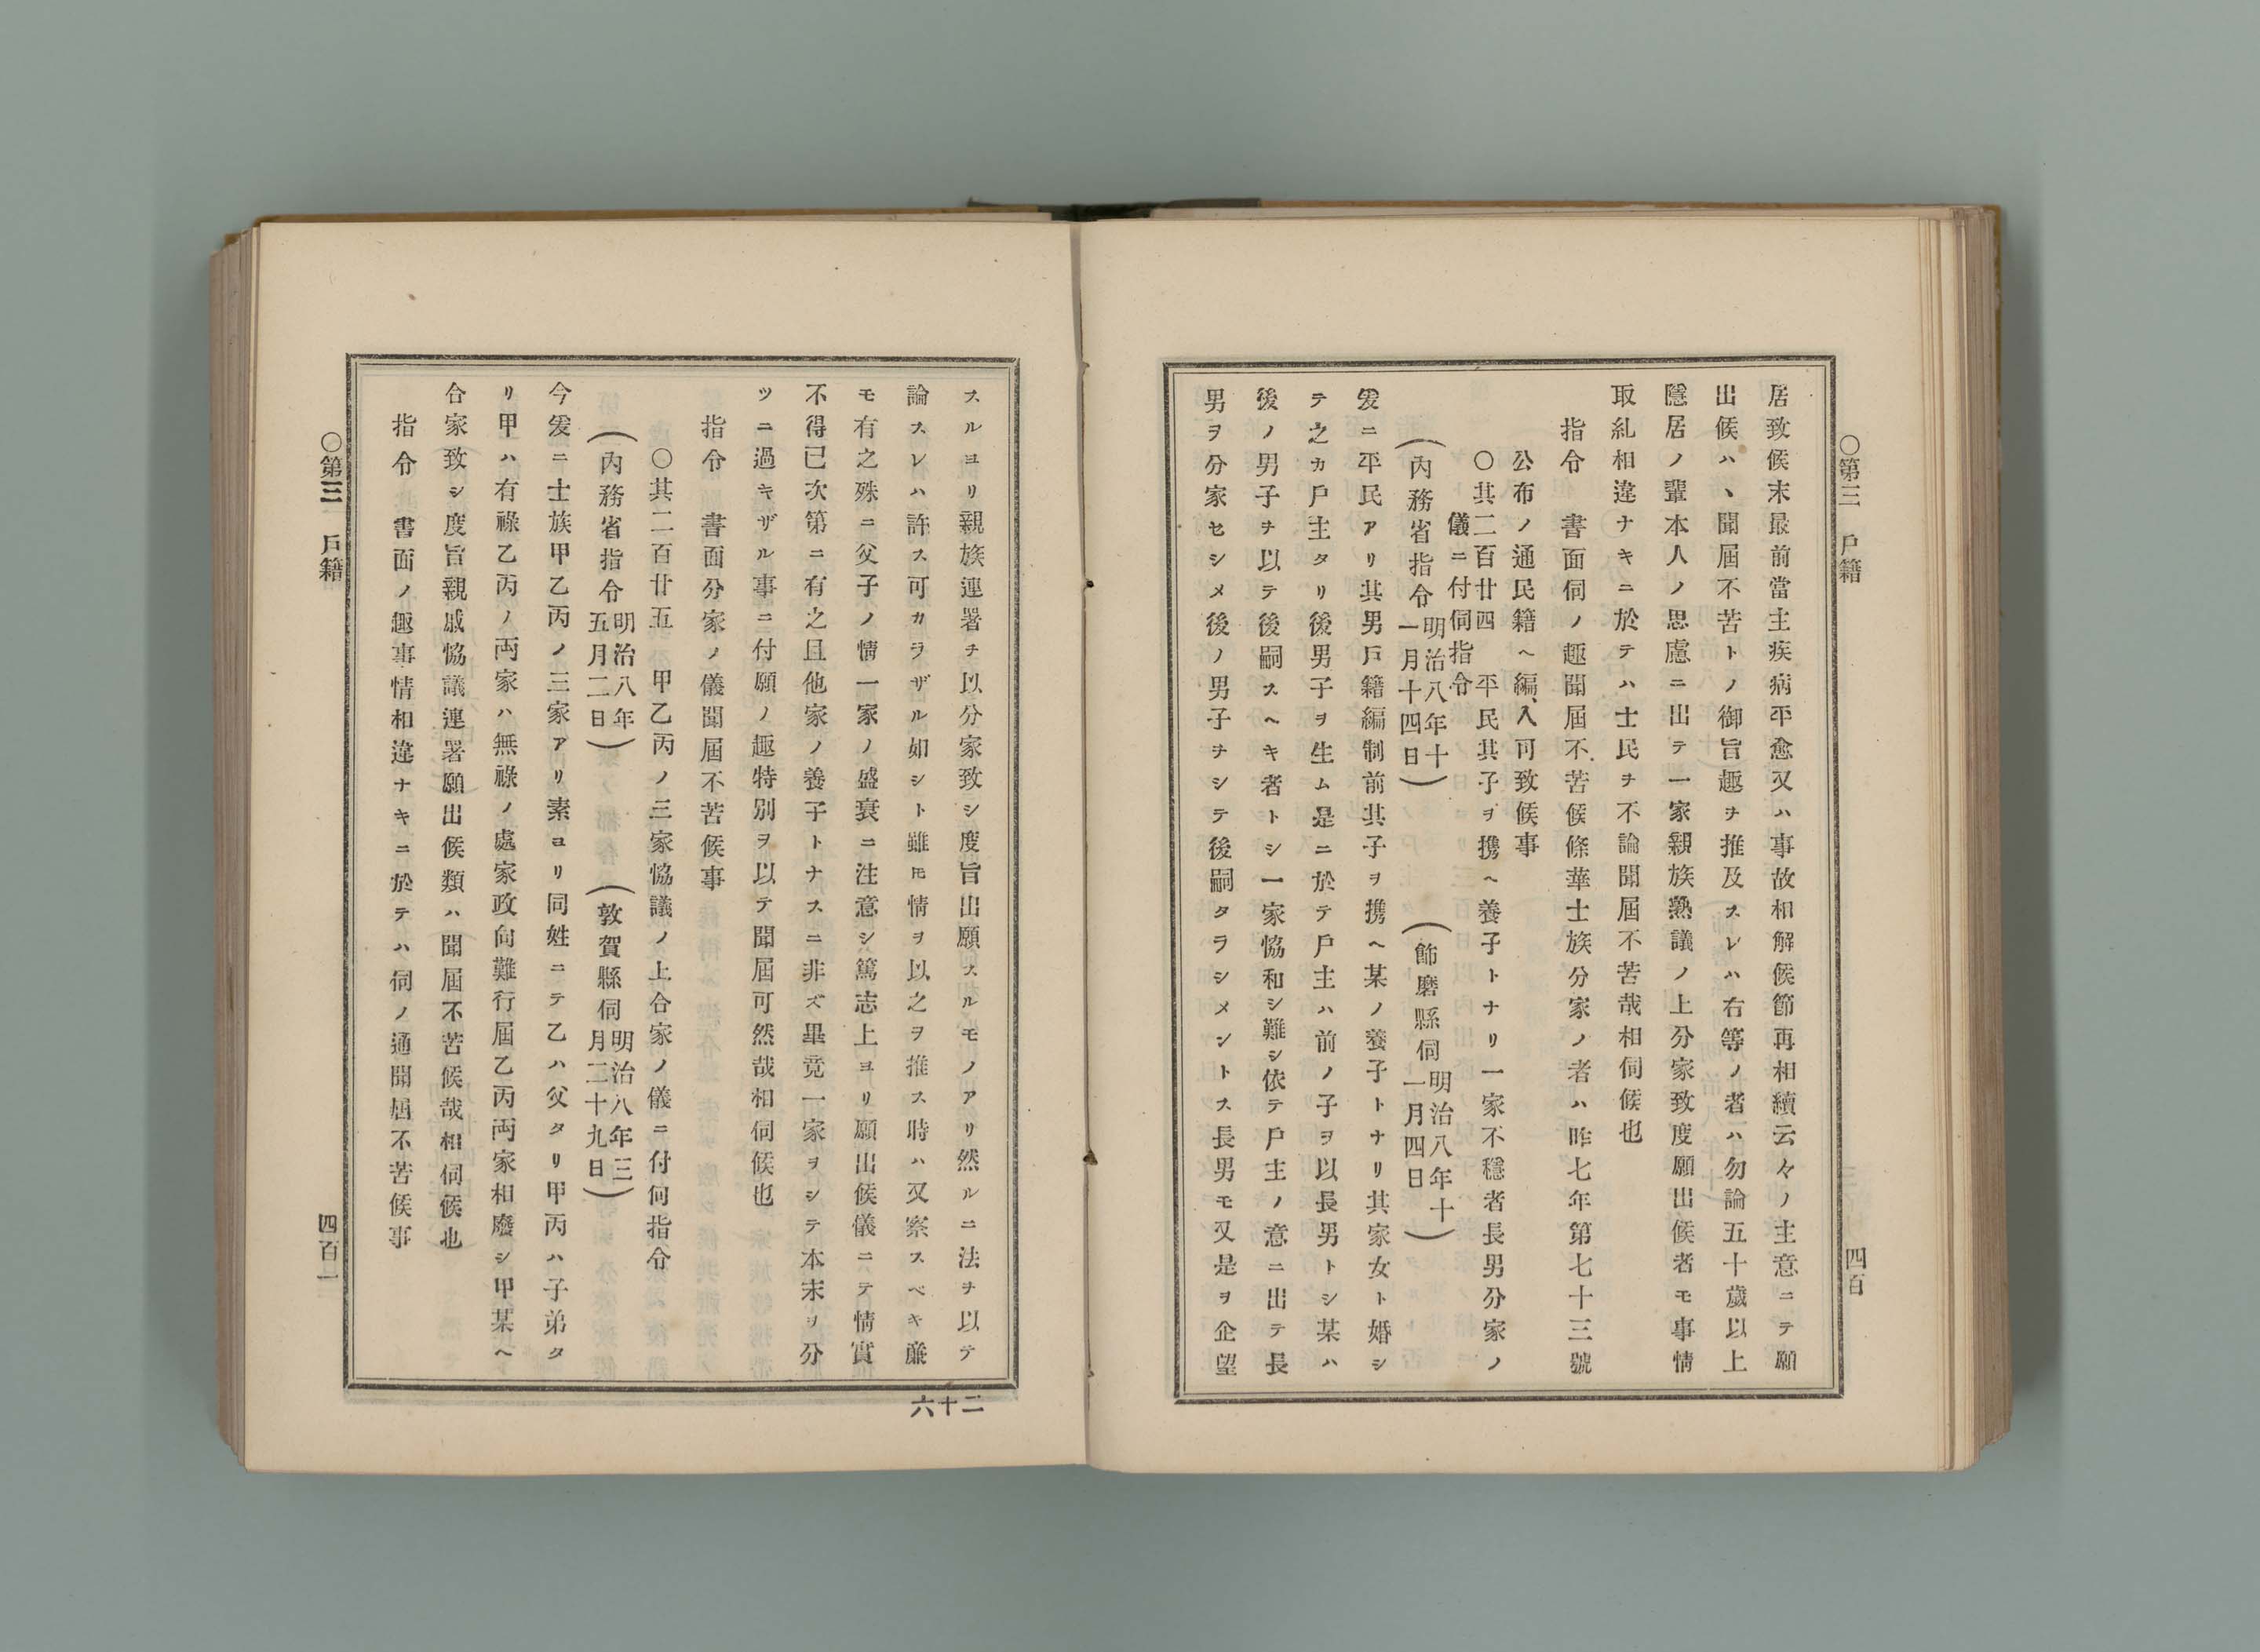 ○第三　戶籍
四百
居致候末最前當主疾病平愈又ハ事故相解候節再相續云々ノ主意ニテ願
出候ハヽ聞屆不苦トノ御旨趣ヲ推及スレハ右等ノ者ハ勿論五十歲以上
隱居ノ輩本人ノ思慮ニ出テ一家親族熟議ノ上分家致度願出候者モ事情
取糺相違ナキニ於テハ士民ヲ不論聞屆不苦哉相伺候也
指令　書面伺ノ趣聞屆不苦候條華士族分家ノ者ハ昨七年第七十三號
公布ノ通民籍ヘ編入可致候事
○其二百廿四　平民其子ヲ携ヘ養子トナリ一家不穩者長男分家ノ
儀ニ付伺指令
（內務省指令明治八年十一月十四日）　（飾磨縣伺明治八年十一月四日）
爰ニ平民アリ其男戶籍編制前其子ヲ携ヘ某ノ養子トナリ其家女ト婚シ
テ之カ戶主タリ後男子ヲ生ム是ニ於テ戶主ハ前ノ子ヲ以長男トシ某ハ
後ノ男子ヲ以テ後嗣スヘキ者トシ一家協和シ難シ依テ戶主ノ意ニ出テ長
男ヲ分家セシメ後ノ男子ヲシテ後嗣タラシメントス長男モ又是ヲ企望
スルヨリ親族連署ヲ以分家致シ度旨出願スルモノアリ然ルニ法ヲ以テ
論スレハ許ス可カラザル如シト雖𪜈情ヲ以之ヲ推ス時ハ又察スベキ廉
モ有之殊ニ父子ノ情一家ノ盛衰ニ注意シ篤志上ヨリ願出候儀ニテ情實
不得已次第ニ有之且他家ノ養子トナスニ非ズ畢竟一家ヲシテ本末ヲ分
ツニ過キザル事ニ付願ノ趣特別ヲ以テ聞屆可然哉相伺候也
指令　書面分家ノ儀聞屆不苦候事
○其二百廿五　甲乙丙ノ三家協議ノ上合家ノ儀ニ付伺指令
（內務省指令明治八年五月二日）　（敦賀縣伺明治八年三月二十九日）
今爰ニ士族甲乙丙ノ三家アリ素ヨリ同姓ニテ乙ハ父タリ甲丙ハ子弟タ
リ甲ハ有祿乙丙ノ両家ハ無祿ノ處家政向難行屆乙丙両家相廢シ甲某ヘ
合家致シ度旨親戚協議連署願出候類ハ聞屆不苦候哉相伺候也
指令　書面ノ趣事情相違ナキニ於テハ伺ノ通聞屆不苦候事
○第三　戶籍
四百一
二十六